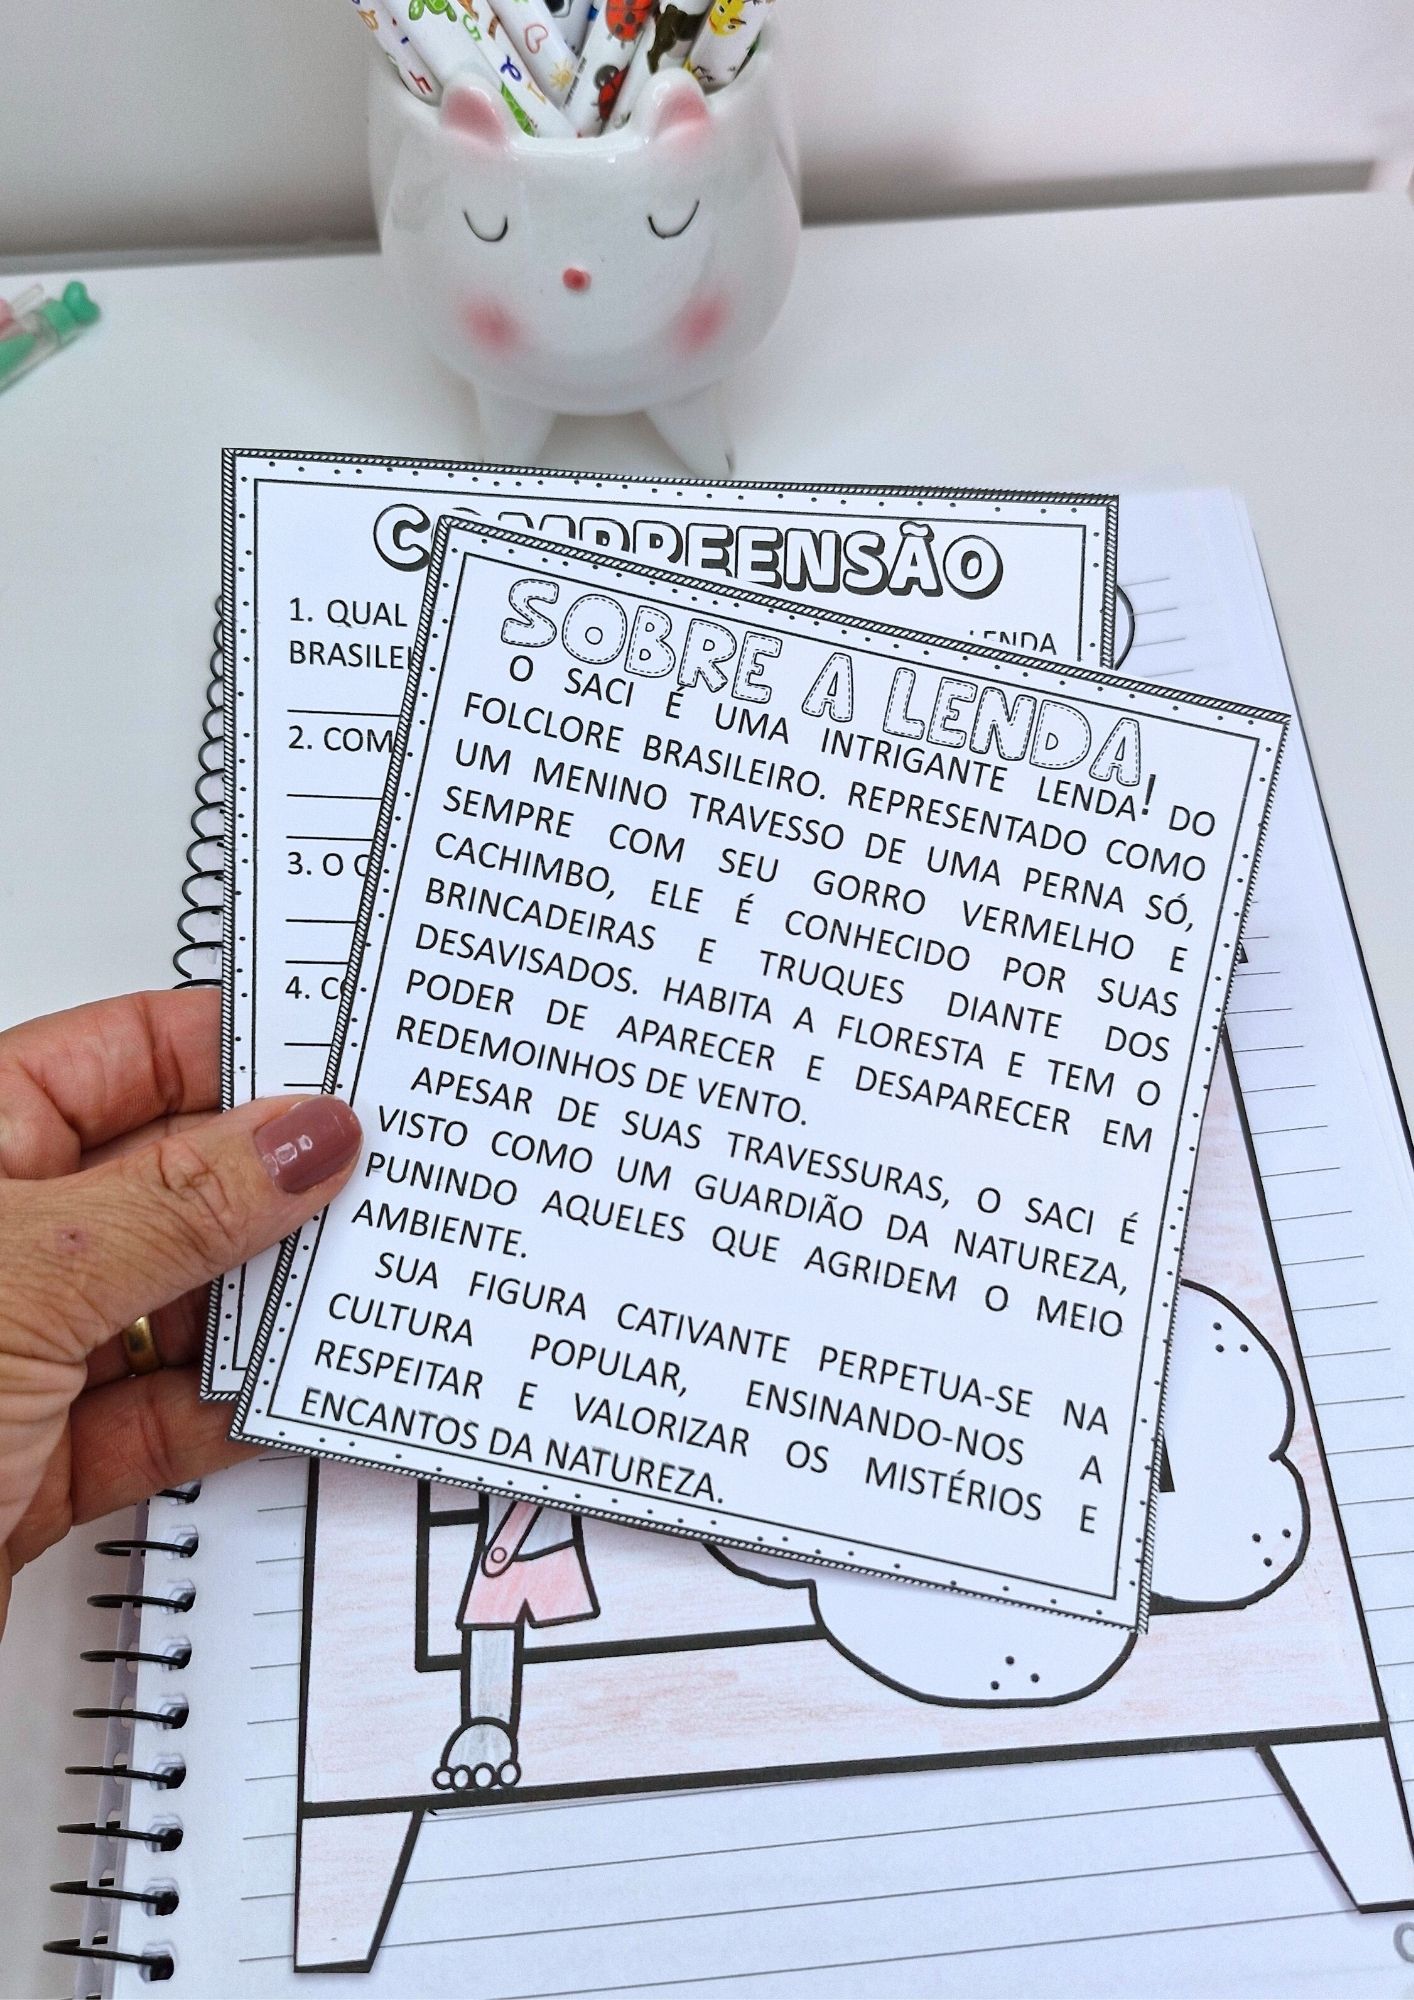 COMPREENSÃO
1. QUAL
LENDA
BRASILEI
2. COM
3. O
4. CO
SOBRE A LENDA!
O SACI É UMA INTRIGANTE LENDA DO
FOLCLORE BRASILEIRO. REPRESENTADO COMO
UM MENINO TRAVESSO DE UMA PERNA SÓ,
SEMPRE COM SEU GORRO VERMELHO E
CACHIMBO, ELE É CONHECIDO POR SUAS
BRINCADEIRAS E TRUQUES DIANTE DOS
DESAVISADOS. HABITA A FLORESTA E TEM O
PODER DE APARECER E DESAPARECER EM
REDEMOINHOS DE VENTO.
APESAR DE SUAS TRAVESSURAS, O SACI É
VISTO COMO UM GUARDIÃO DA NATUREZA,
PUNINDO AQUELES QUE AGRIDEM O MEIO
AMBIENTE.
SUA FIGURA CATIVANTE PERPETUA-SE NA
CULTURA POPULAR, ENSINANDO-NOS A
RESPEITAR E VALORIZAR OS MISTÉRIOS E
ENCANTOS DA NATUREZA.